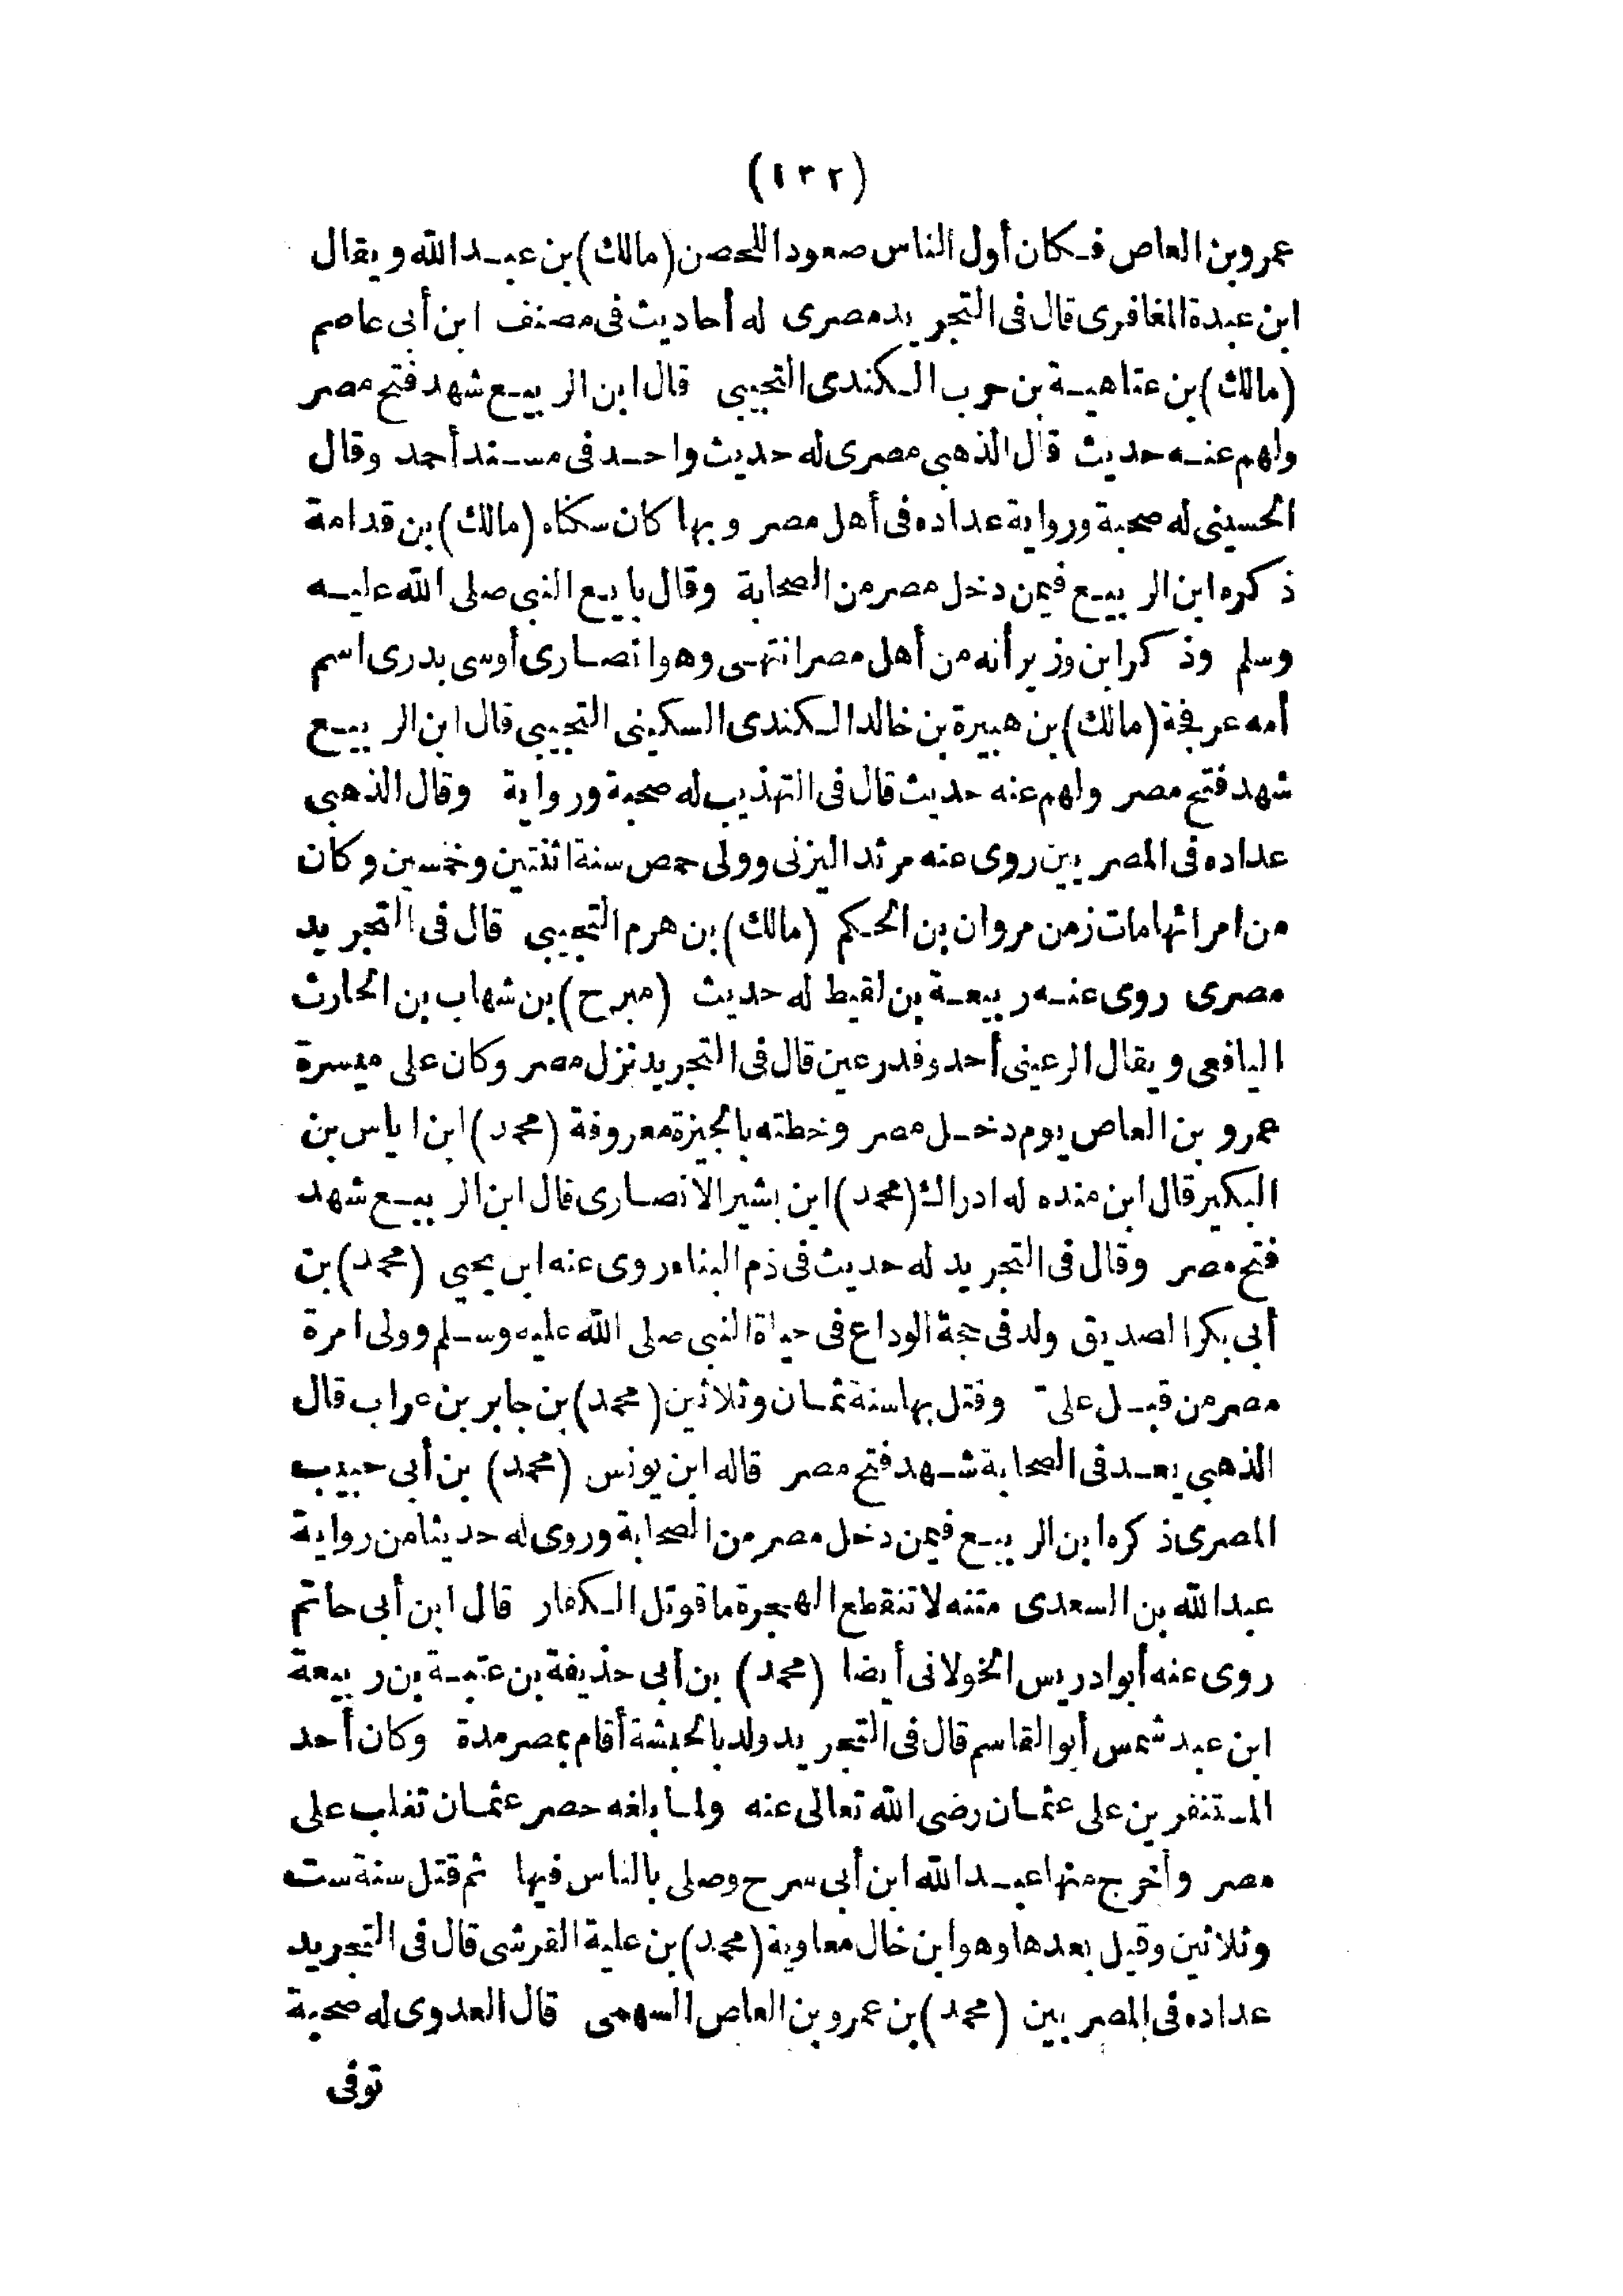 (١٣٢)
عمرو بن العاص فكان أول الناس صعودا للحصن (مالك) بن عبد الله ويقال
ابن عبدة المغافرى قال فى التجريد مصرى له أحاديث فى مصنف ابن أبى عاصم
(مالك) بن عتاهية بن حرب الكندى التجيبى قال ابن الربيع شهد فتح مصر
ولهم عنه حديث قال الذهبى مصرى له حديث واحد فى مسند أحمد وقال
الحسينى له صحبة ورواية عداده فى أهل مصر وبها كان سكناه (مالك) بن قدامة
ذكره ابن الربيع فيمن دخل مصر من الصحابة وقال بايع النبى صلى الله عليه
وسلم وذكر ابن وزير أنه من أهل مصر انتهى وهو انصارى أوسى بدرى اسم
أمه عرفجة (مالك) بن هبيرة بن خالد الكندى السكينى التجيبى قال ابن الربيع
شهد فتح مصر ولهم عنه حديث قال فى التهذيب له صحبة ورواية وقال الذهبى
عداده فى المصريين روى عنه مرثد اليزنى وولى حمص سنة اثنتين وخمسين وكان
من امرائها مات زمن مروان بن الحكم (مالك) بن هرم التجيبى قال فى التجريد
مصرى روى عنه ربيعة بن لقيط له حديث (مبرح) بن شهاب بن الحارث
اليافعى ويقال الرعينى أحد وفد رعين قال فى التجريد نزل مصر وكان على ميسرة
عمرو بن العاص يوم دخل مصر وخطته بالجيزة معروفة (محمد) ابن اياس بن
البكير قال ابن منده له ادراك (محمد) ابن بشير الانصارى قال ابن الربيع شهد
فتح مصر وقال فى التجريد له حديث فى ذم البناء روى عنه ابن يحيى (محمد) بن
أبى بكر الصديق ولد فى حجة الوداع فى حياة النبى صلى الله عليه وسلم وولى امرة
مصر من قبل على وقتل بها سنة ثمان وثلاثين (محمد) بن جابر بن عراب قال
الذهبى يعد فى الصحابة شهد فتح مصر قاله ابن يونس (محمد) بن أبى حبيب
المصرى ذكره ابن الربيع فيمن دخل مصر من الصحابة وروى له حديثا من رواية
عبد الله بن السعدى متنه لا تنقطع الهجرة ما قوتل الكفار قال ابن أبى حاتم
روى عنه أبو ادريس الخولانى أيضا (محمد) بن أبى حذيفة بن عتبة بن ربيعة
ابن عبد شمس أبو القاسم قال فى التجريد ولد بالحبشة أقام بمصر مدة وكان أحد
المستنفرين على عثمان رضى الله تعالى عنه ولما بلغه حصر عثمان تغلب على
مصر وأخرج منها عبد الله ابن أبى سرح وصلى بالناس فيها ثم قتل سنة ست
وثلاثين وقيل بعدها وهو ابن خال معاوية (محمد) بن علية القرشى قال فى التجريد
عداده فى المصريين (محمد) بن عمرو بن العاص السهمى قال العدوى له صحبة
توفى